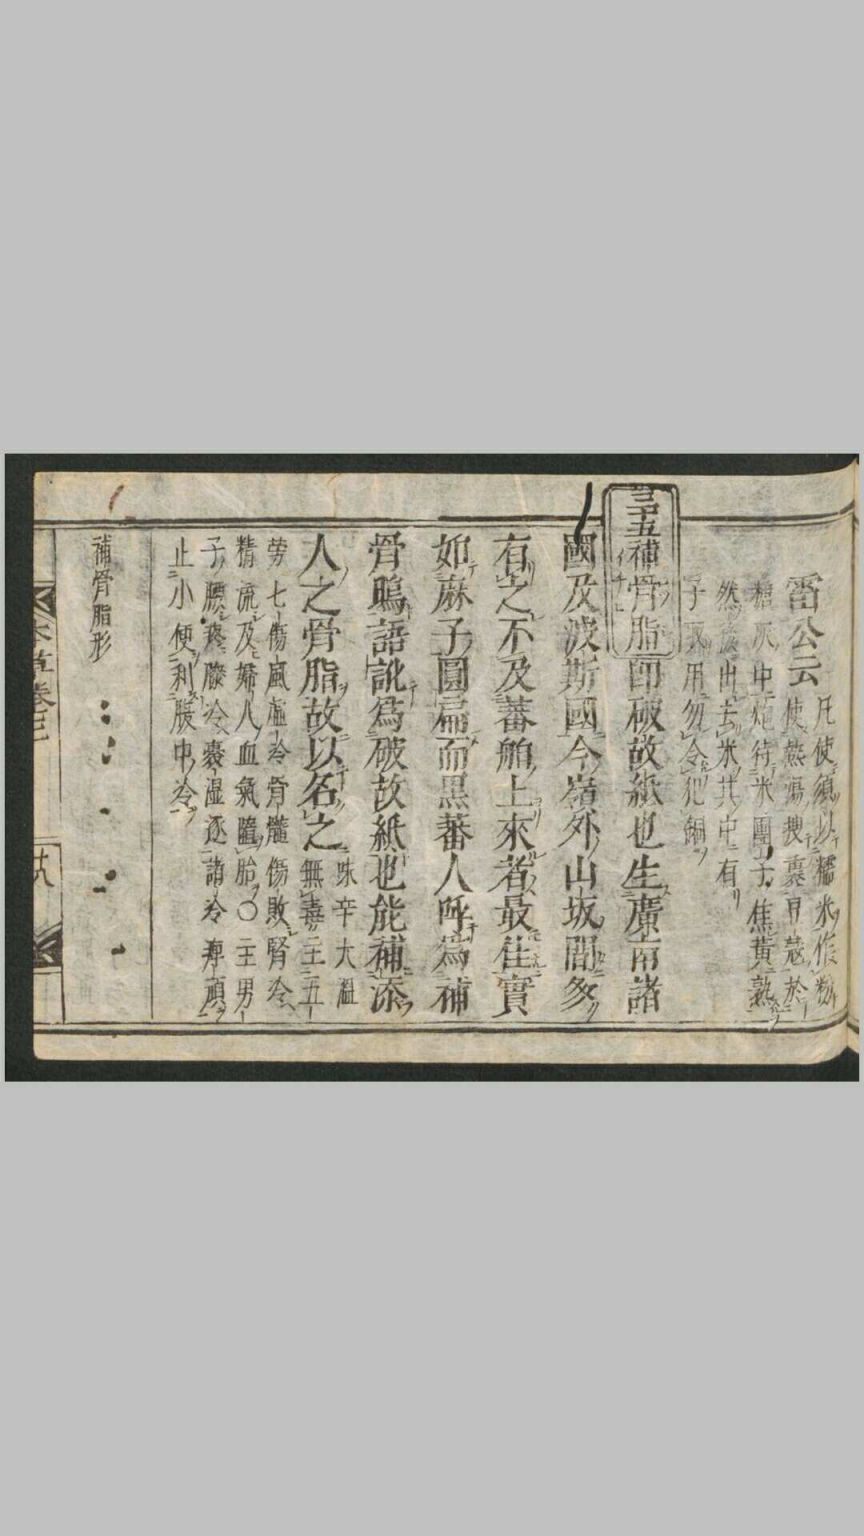 雷公云
凡使須以糯米作粉
使熱湯搜裹肉蔻於
糖灰中炮待米團子焦黄熟
然後出去米其中有
子取用勿令犯銅
三十五補骨脂即破故紙也生廣南諸
國及波斯國今嶺外山坂間多
有之不及蕃舶上來者最佳實
如麻子圓扁而黒蕃人呼為補
骨鴟語訛為破故紙也能補添
人之骨脂故以名之
味辛大温
無毒主五
勞七傷風虚冷骨髓傷敗腎冷
精流及婦人血氣墮胎〇主男
子腰疼膝冷囊湿逐諸冷痺頑
止小便利腹中冷
補骨脂形
本草卷三
十八